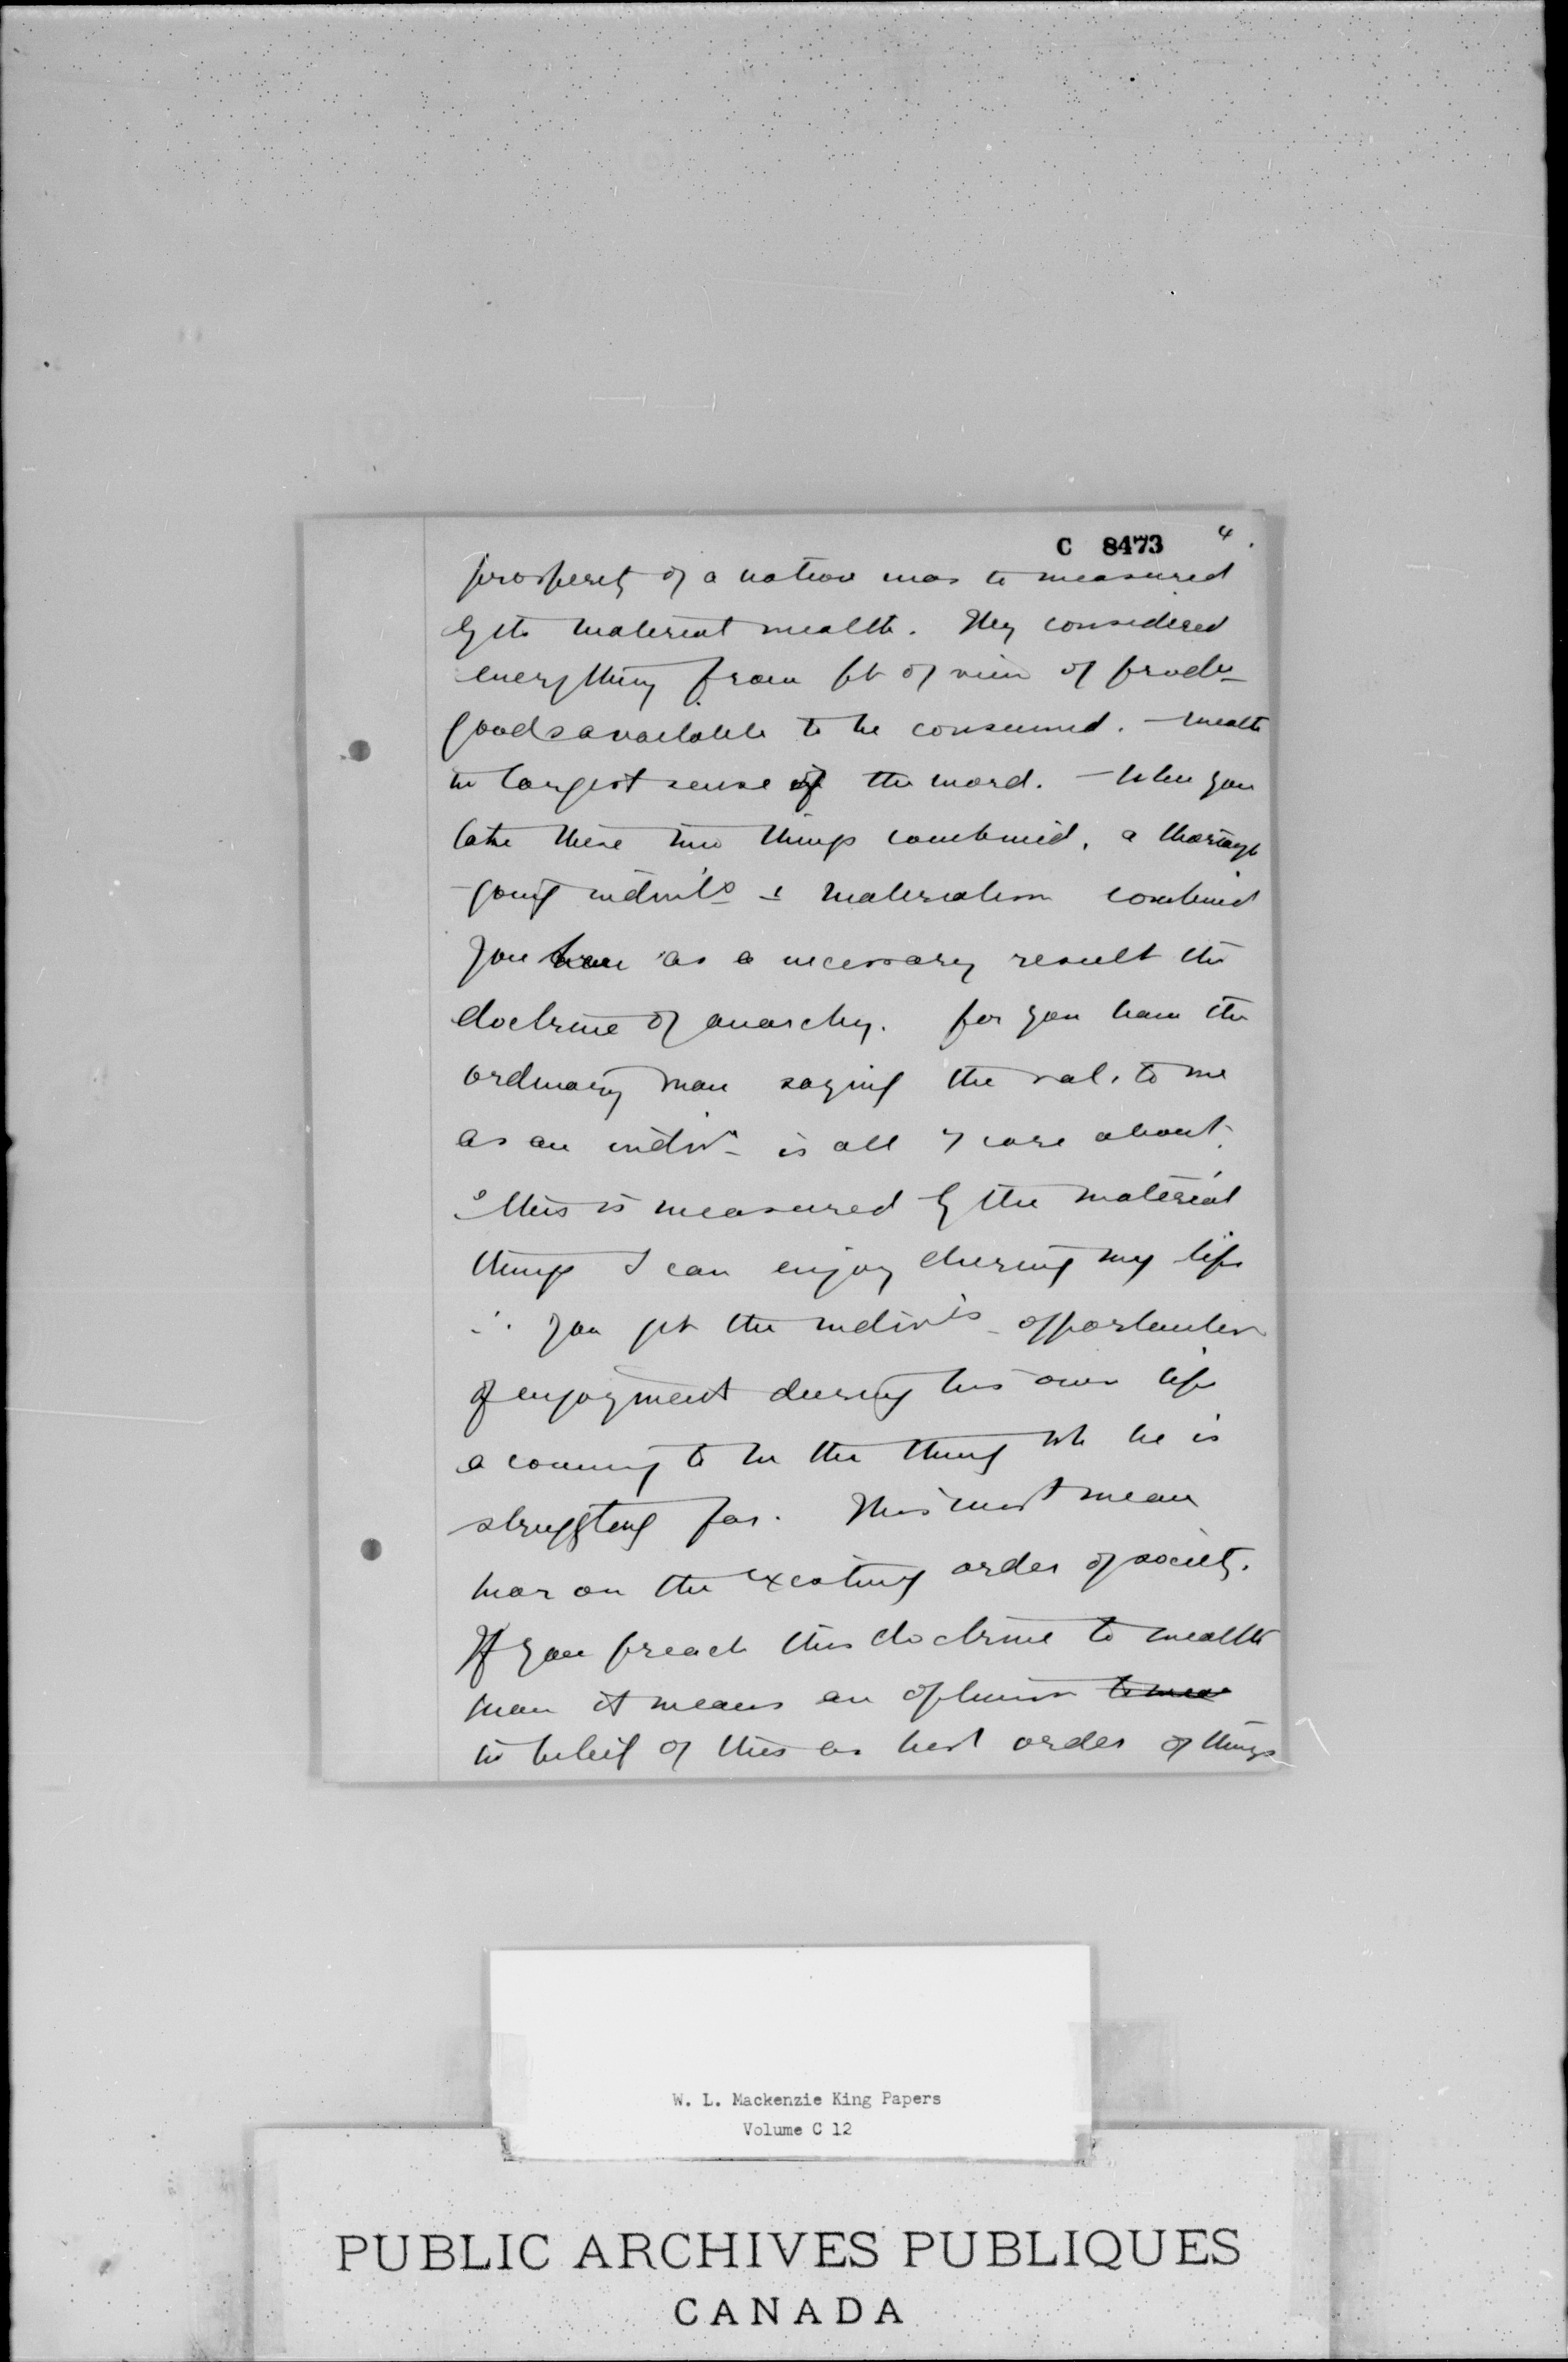 C 8473 4.
prosperity of a nation was to measured
by its material wealth. They considered
everything from pt of view of produ-
goods available to be consumed. - wealth
in largest sense of the word. - When you
take these two things combined, a thorough
going indivls & materialism combined
you have as a necessary result the
doctrine of anarchy. for you have the
ordinary man saying the val. to me
as an indivl is all I care about.
& this is measured by the material
things I can enjoy during my life
∴ you get the indivls opportunities
of enjoyment during his own life
a coming to be the thing wh he is
struggling for. This must mean
war on the existing order of society.
If you preach this doctrine to wealthy
man it means an optimism
in belief of this as best order of things
W. L. Mackenzie King Papers
Volume C 12
PUBLIC ARCHIVES PUBLIQUES
CANADA